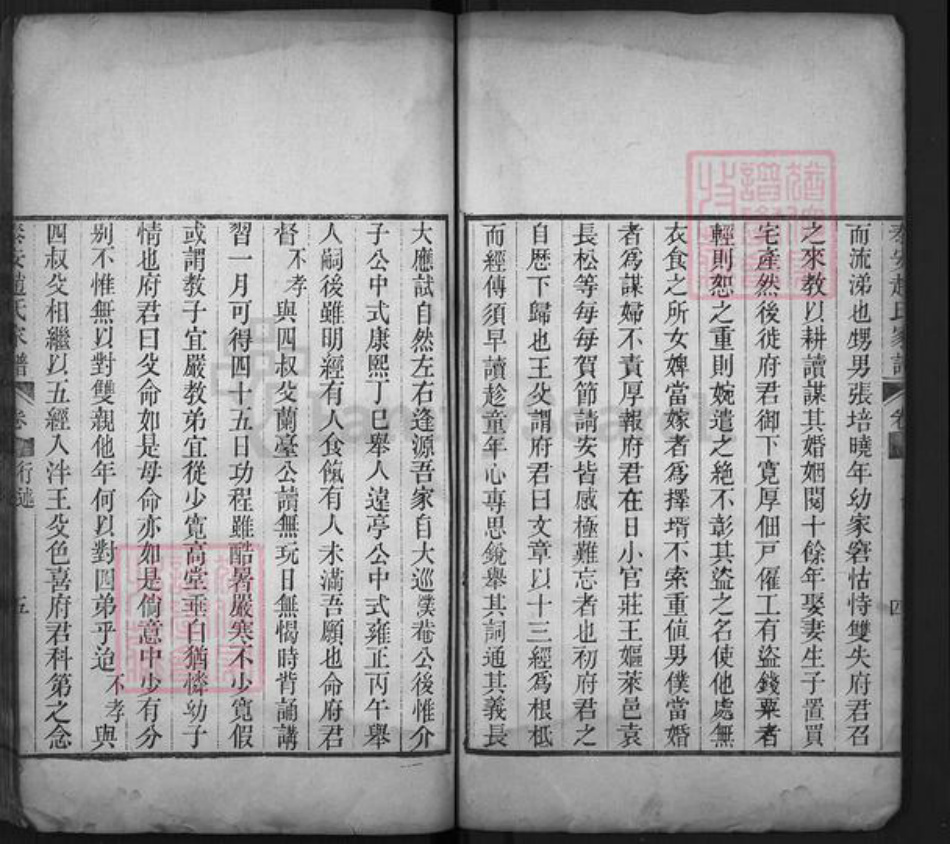 而流涕也甥男張培曉年幼家窘怙恃雙失府君召
之來教以耕讀謀其婚姻閱十餘年娶妻生子置買
宅產然後徙府君御下寬厚佃戸僱工有盜錢粟者
輕則恕之重則婉遣之絕不彰其盜之名使他處無
衣食之所女婢當嫁者為擇壻不索重値男僕當婚
者為謀婦不責厚報府君在日小官莊王嫗萊邑袁
長松等每每賀節請安皆感極難忘者也初府君之
自歴下歸也王父謂府君曰文章以十三經為根柢
而經傳須早讀趁童年心専思銳舉其詞通其義長
泰安趙氏家譜 卷 四
大應試自然左右逢源吾家自大巡濮菴公後惟介
子公中式康熙丁巳舉人遠亭公中式雍正丙午舉
人嗣後雖明經有人食餼有人未滿吾願也命府君
督不孝與四叔父蘭臺公讀無玩日無愒時背誦講
習一月可得四十五日功程雖酷暑嚴寒不少寬假
或謂教子宜嚴教弟宜從少寬高堂垂白猶憐幼子
情也府君曰父命如是母命亦如是倘意中少有分
别不惟無以對雙親他年何以對四弟乎迨不孝與
四叔父相繼以五經入泮王父色喜府君科第之念
泰安趙氏家譜 卷 行述 五